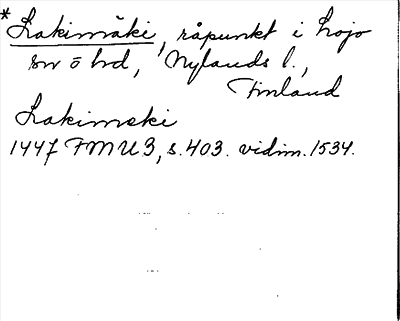 *Lakimäki, råpunkt i Lojo
sn ö hd, Nylands l.,
Finland
Lakimski
1447 FMU3, s. 403. vidim. 1534.